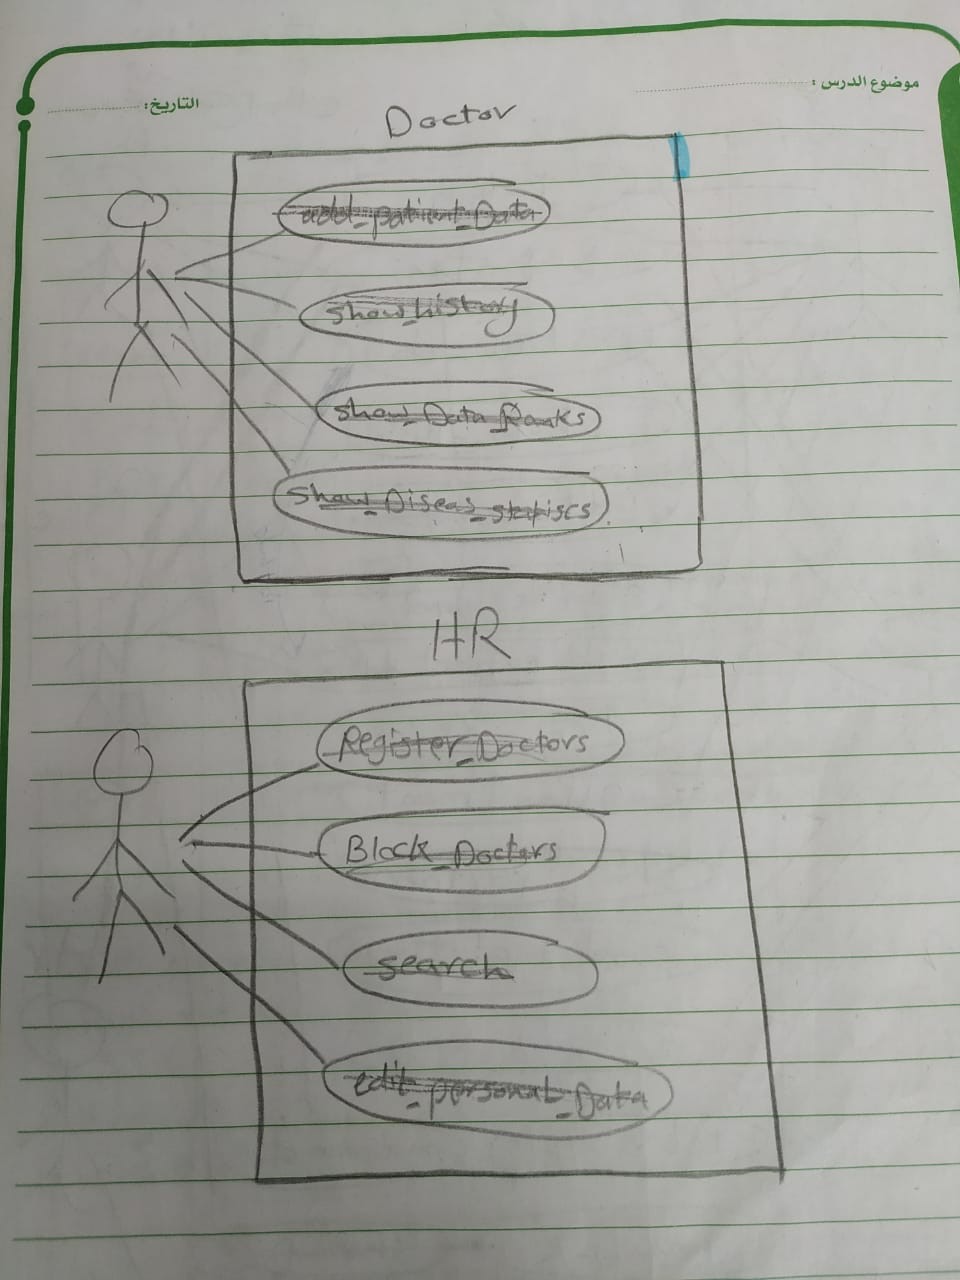 موضوع الدرس :
التاريخ:
Doctor
add_patient_Data
show_history
show_Data_Ranks
show_Diseas_statiscs
HR
Register_Doctors
Block_Doctors
search
edit_personal_Data